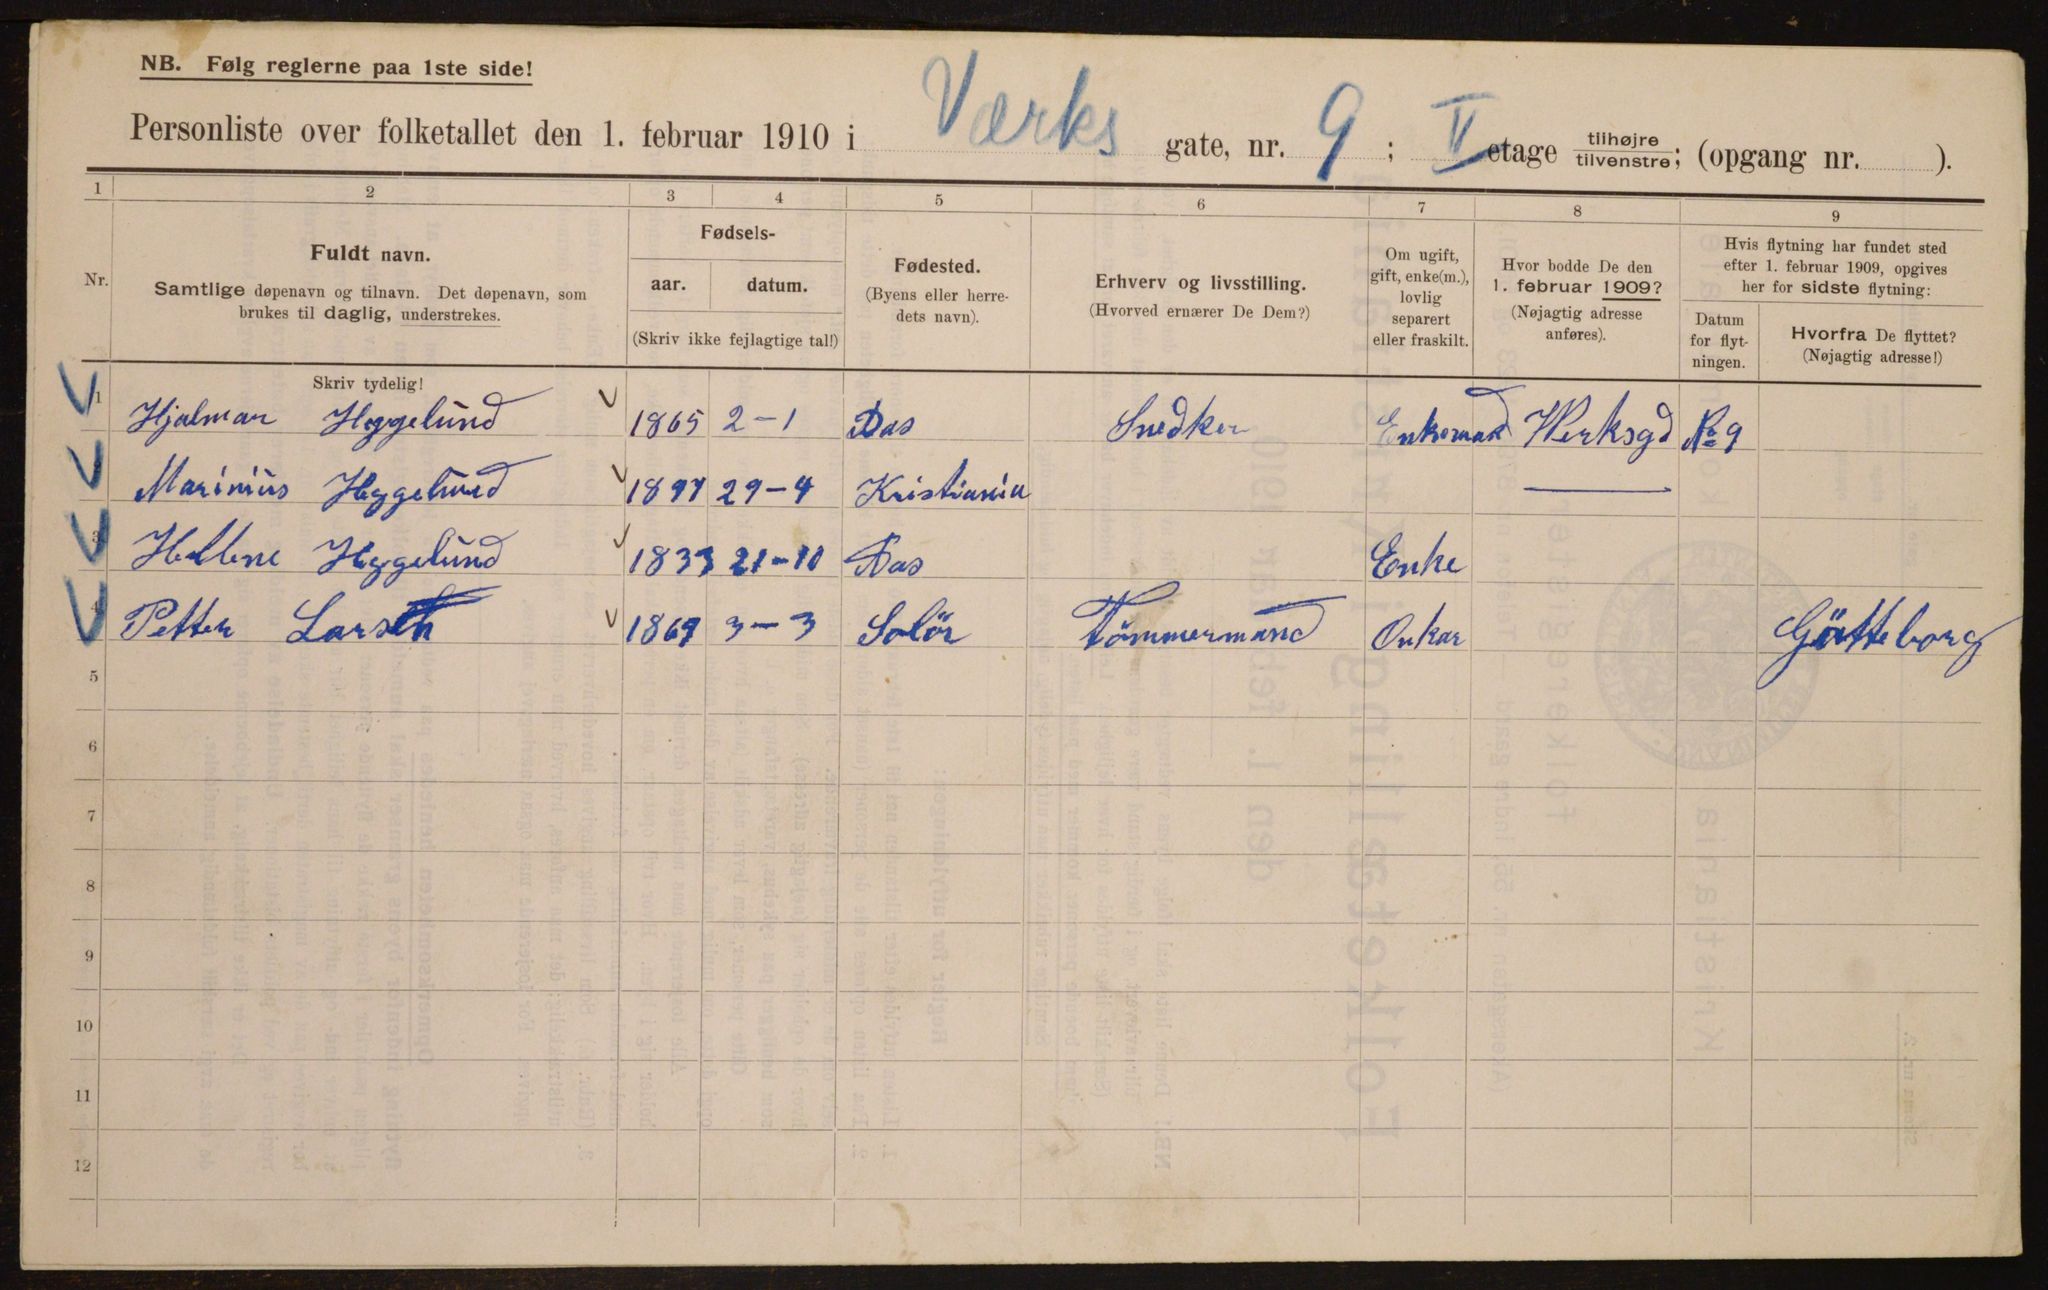 NB. Følg reglerne paa 1ste side!
Personliste over folketallet den 1. februar 1910 i Værks gate, nr. 9; V etage tilhøjre tilvenstre; (opgang nr. ).
1 2 3 4 5 6 7 8 9
Nr.
Fuldt navn.
Samtlige døpenavn og tilnavn. Det døpenavn, som
brukes til daglig, understrekes.
Skriv tydelig!
Fødsels-
aar. datum.
(Skriv ikke fejlagtige tal!)
Fødested.
(Byens eller herre-
dets navn).
Erhverv og livsstilling.
(Hvorved ernærer De Dem?)
Om ugift,
gift, enke(m.),
lovlig
separert
eller fraskilt.
Hvor bodde De den
1. februar 1909?
(Nøjagtig adresse
anføres).
Hvis flytning har fundet sted
efter 1. februar 1909, opgives
her for sidste flytning:
Datum
for flyt-
ningen.
Hvorfra De flyttet?
(Nøjagtig adresse!)
1 Hjalmar Heggelund 1865 2-1 Aas Snedker Enkemand Werksgd No 9
2 Marinius Heggelund 1897 29-4 Kristiania
3 Hellene Heggelund 1833 21-10 Aas Enke
4 Petter Larsen 1869 3-3 Solör Tömmermand Onkar Götteborg
5
6
7
8
9
10
11
12